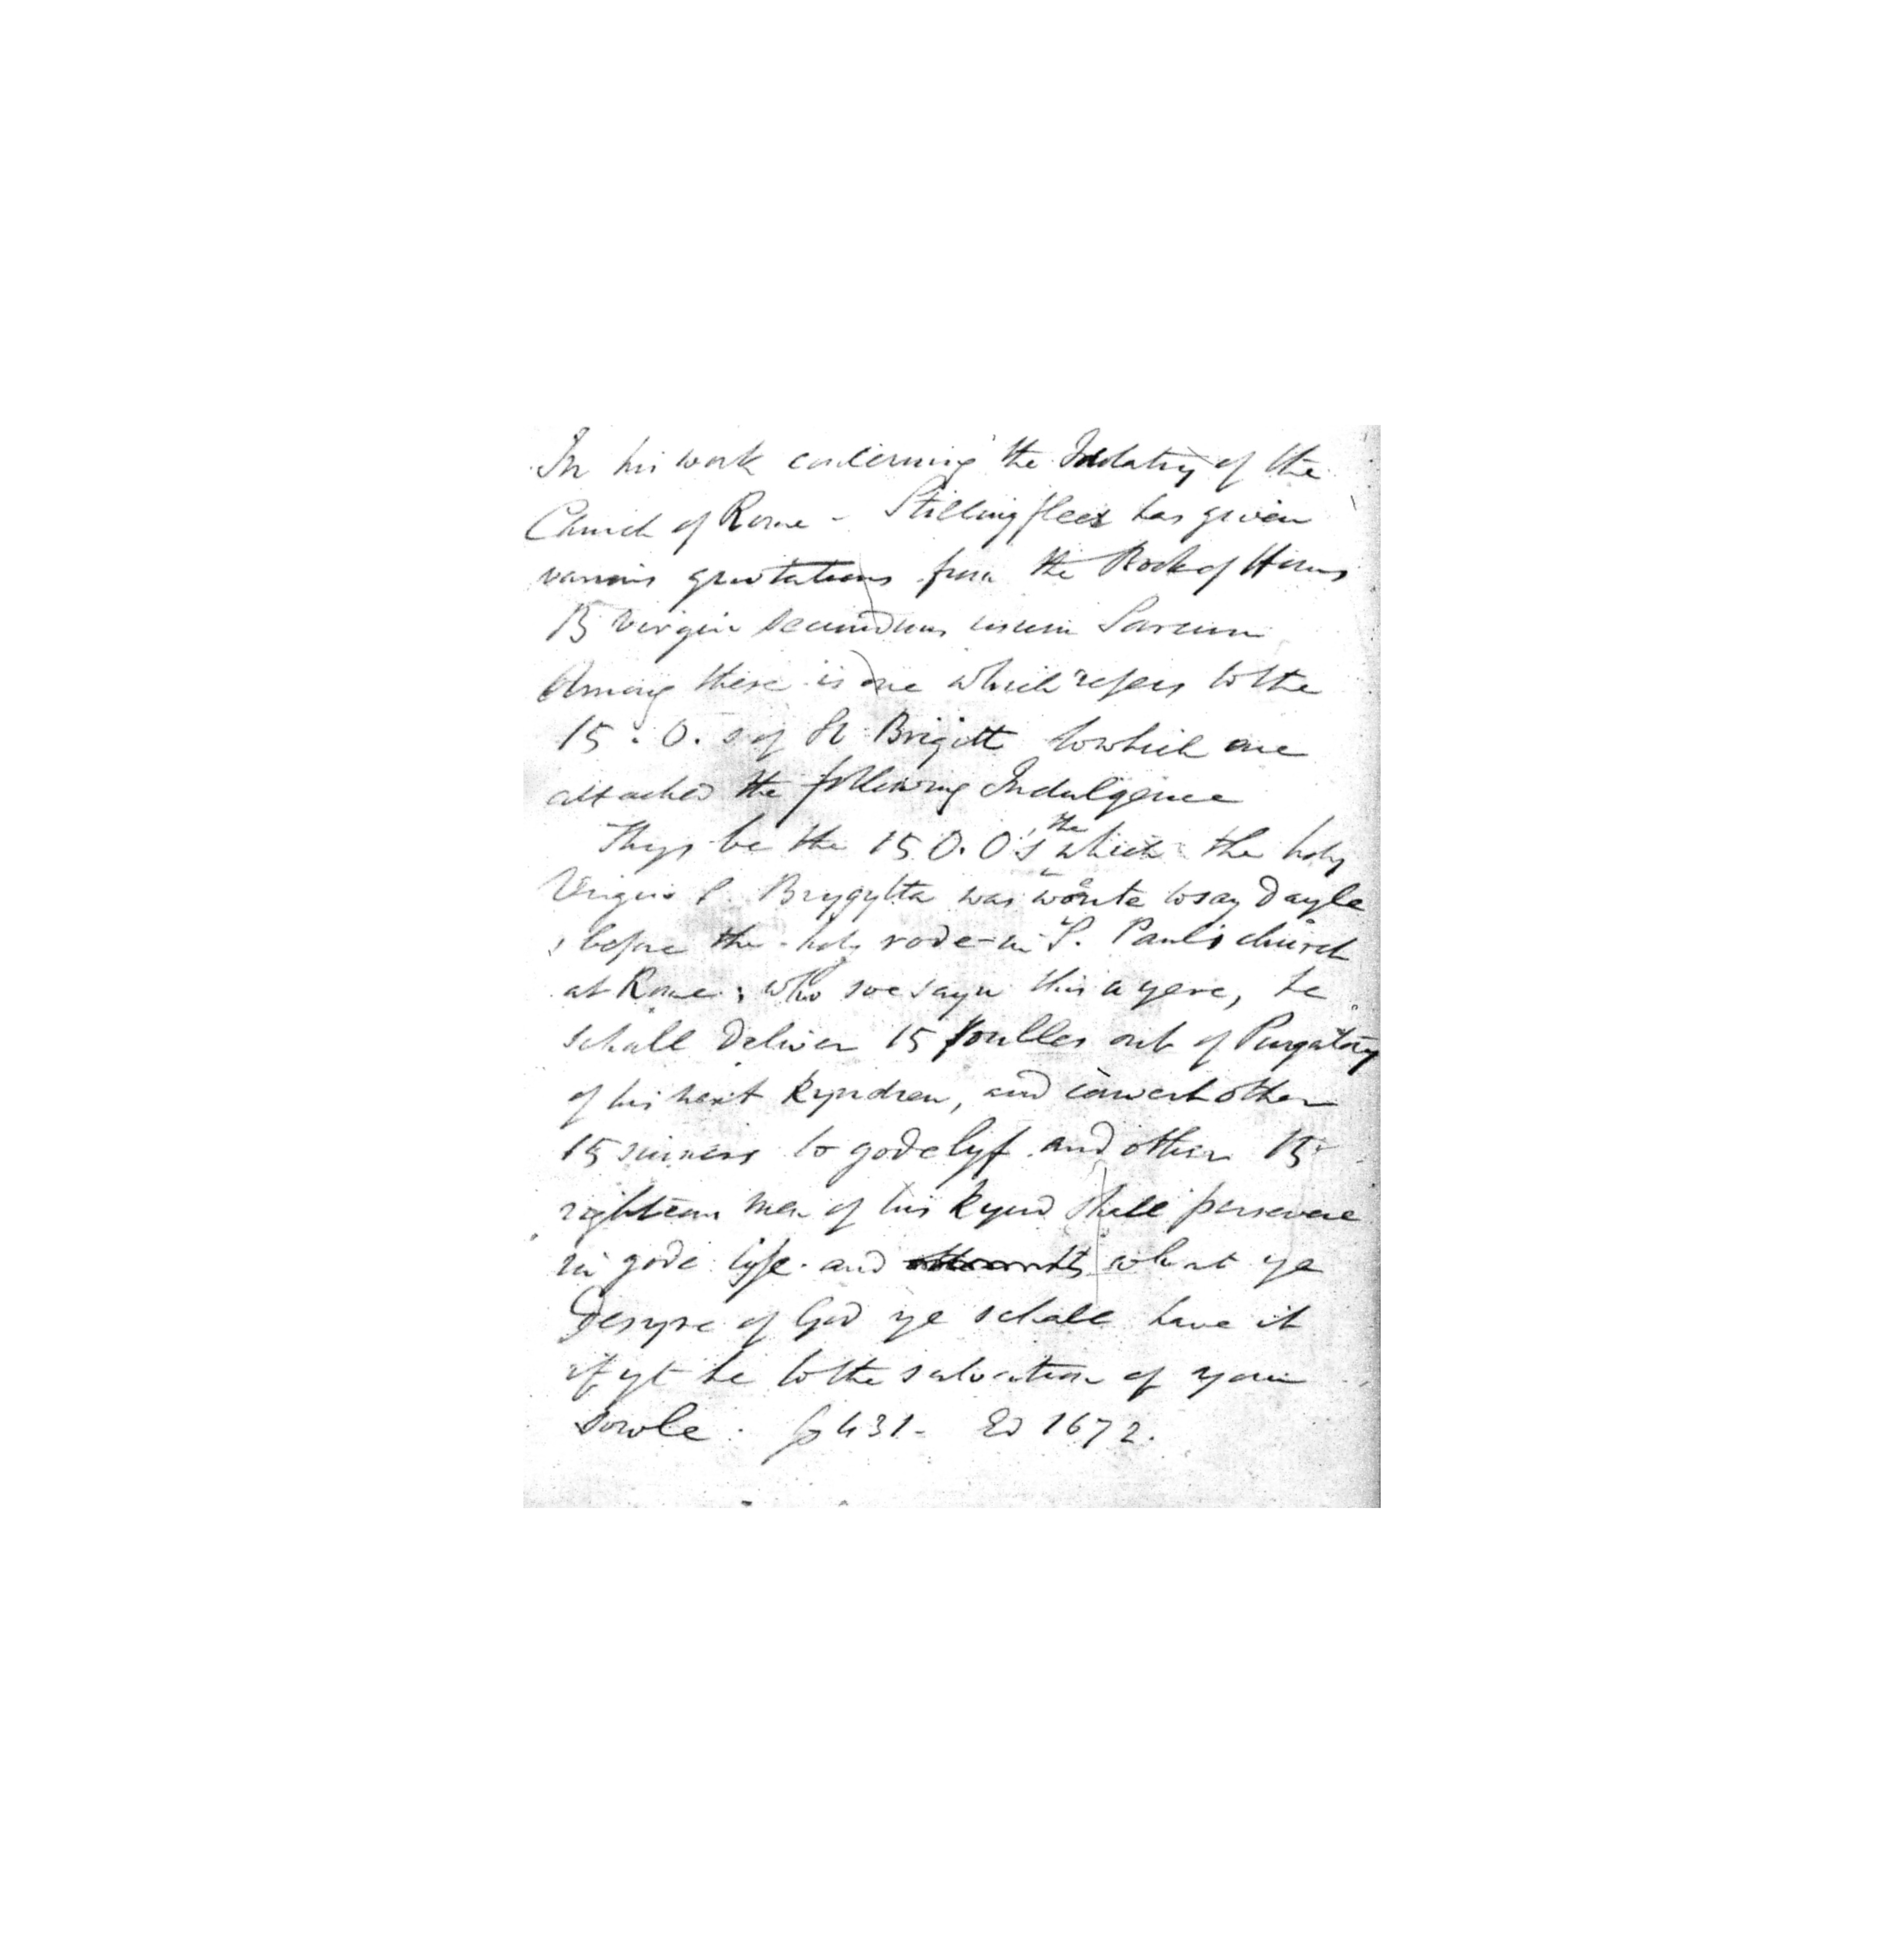 In his work concerning the Idolatry of the
Church of Rome - Stillingfleet has given
various quotations from the Book of Hours
B Virgin secundum usum Sarum
Among these is one which refers to the
15 . O. s of St Brigitt to which are
attached the following Indulgence
Thys be the 15 O. O's the which the holy
Virgin S. Brygytta was wonte to say dayle
before the holy rode in S. Paul's church
at Rome; who soe sayn this a yere, he
schall deliver 15 soulles out of Purgatory
of his next kyndren, and convert other
15 sinners to gode lyf and other 15
righteous men of his kynd shall persevere
in gode lyfe and what ye
desyre of God ye schall have it
if yt be to the salvation of your
sowle . p 431 - Ed 1672.